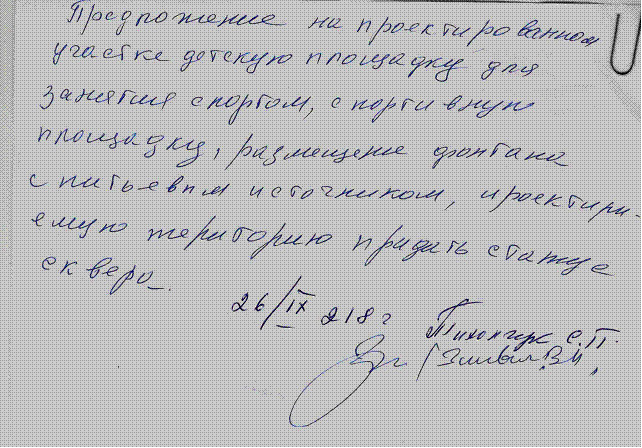 Предложение на проектированном
участке детскую площадку для
занятия спортом, спортивную
площадку, размещение фонтана
с питьевым источником, проектиру-
емую територию придать статус
сквера.
26/IX 218 г
С.П.